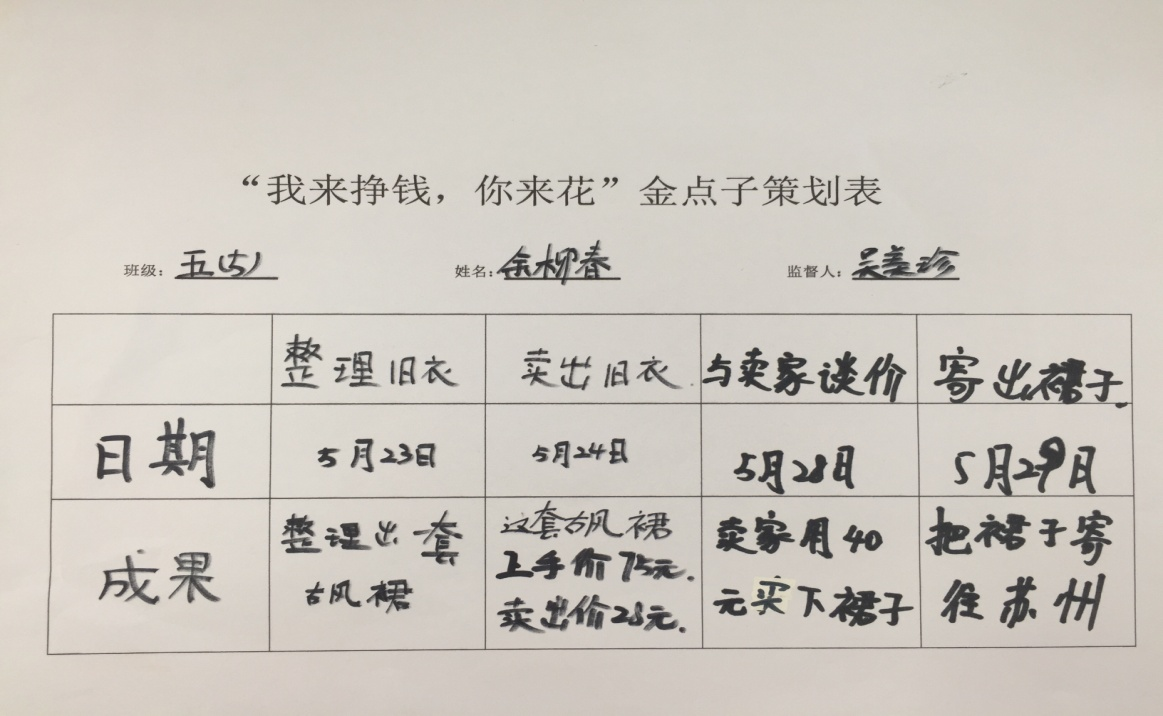 “我来挣钱，你来花”金点子策划表
班级：五(5) 姓名：余柳春 监督人：吴美珍
整理旧衣 卖出旧衣 与卖家谈价 寄出裙子
日期 5月23日 5月24日 5月28日 5月29日
成果
整理出一套
古风裙
这套古风裙
上手价75元.
卖出价28元.
卖家用40
元买下裙子
把裙子寄
往苏州